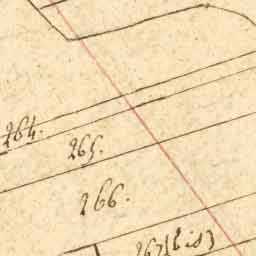 264.
265.
266.
267 (bis)